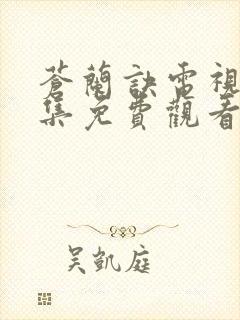 蒼蘭訣電視
集免費觀看
吳凱庭